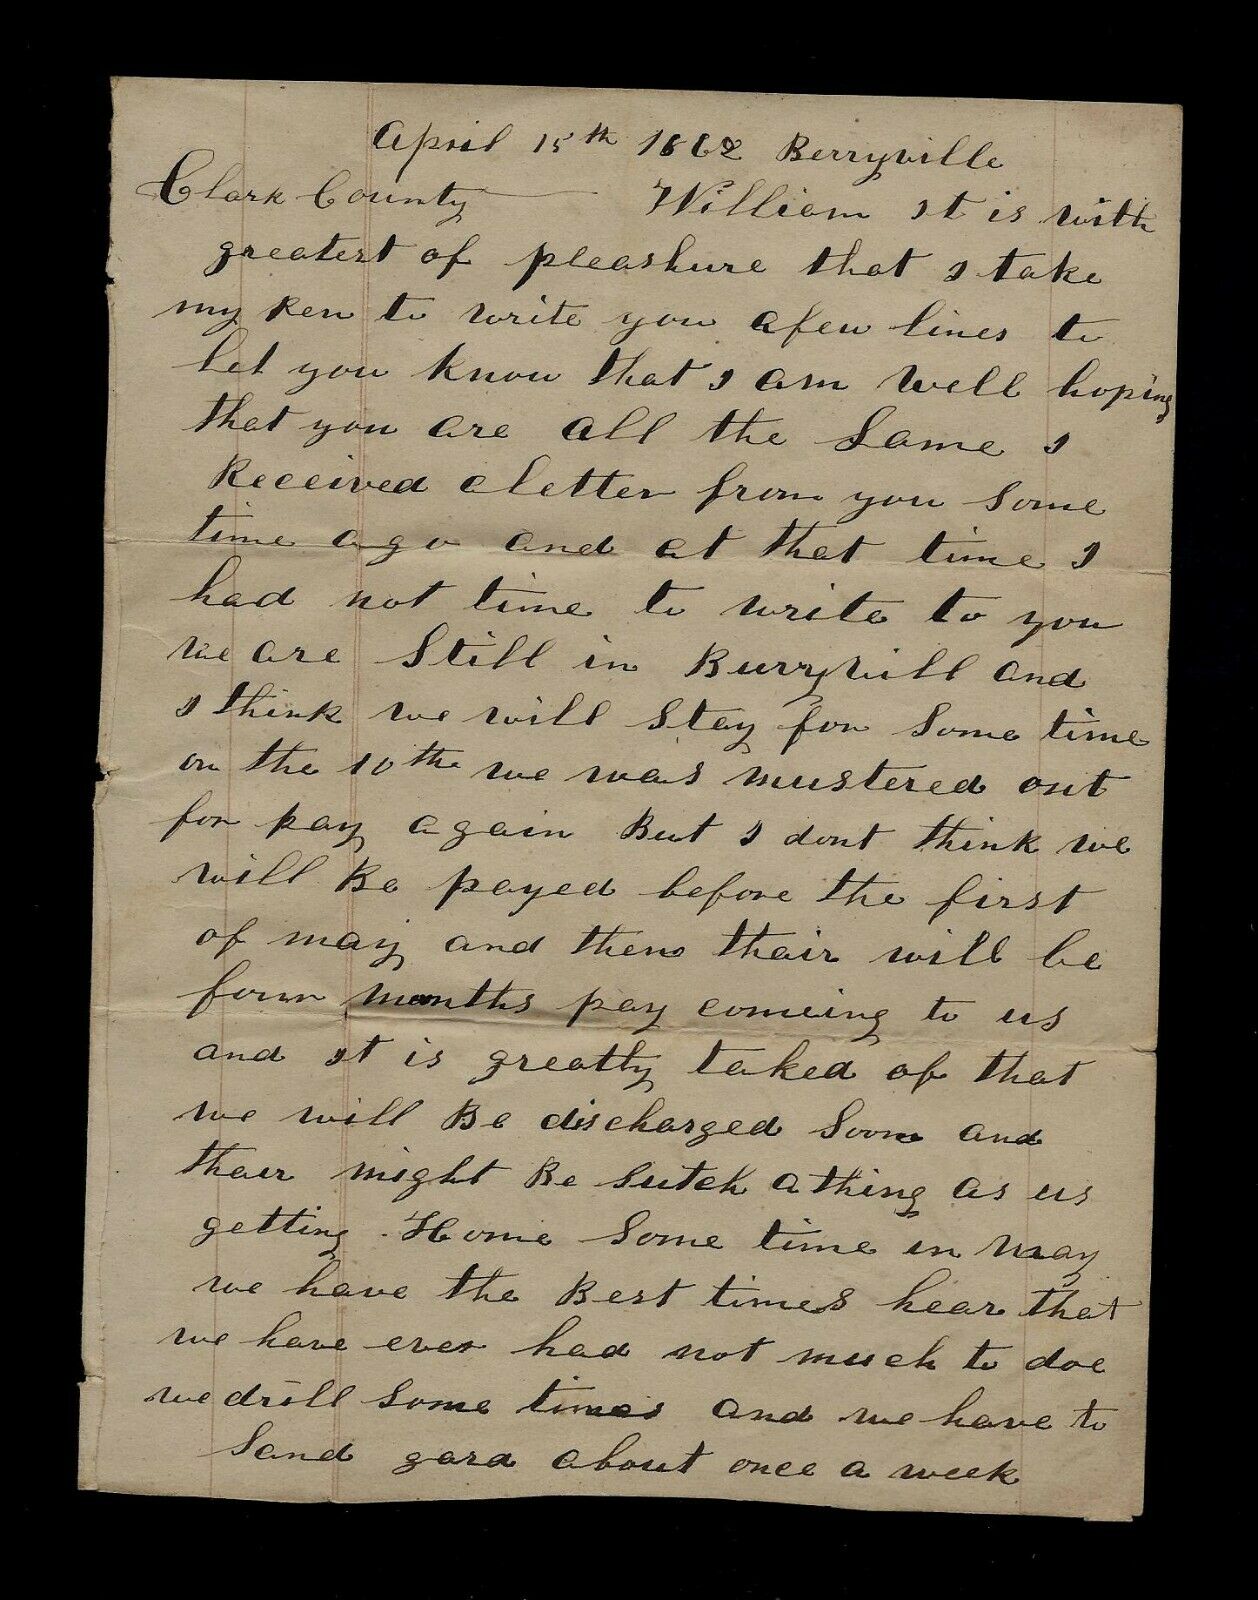 April 15th 1862 Berryville
Clark County William It is with
greatest of pleashure that I take
my Pen to write you a few lines to
let you know that I am well hoping
that you are all the Same I
Received a letter from you Some
time ago and at that time I
had not time to write to you
we are Still in Burryvill and
I think we will Stay for Some time
on the 10th we was mustered out
for pay again But I dont think we
will Be payed before the first
of may and then thair will be
fourr months pay comeing to us
and It is greatly talked of that
we will Be discharged Soon and
thair might Be Sutch a thing as us
getting Home Some time in may
we have the Best times hear that
we have ever had not much to doe
we drill Some times and we have to
Sand gard about once a week